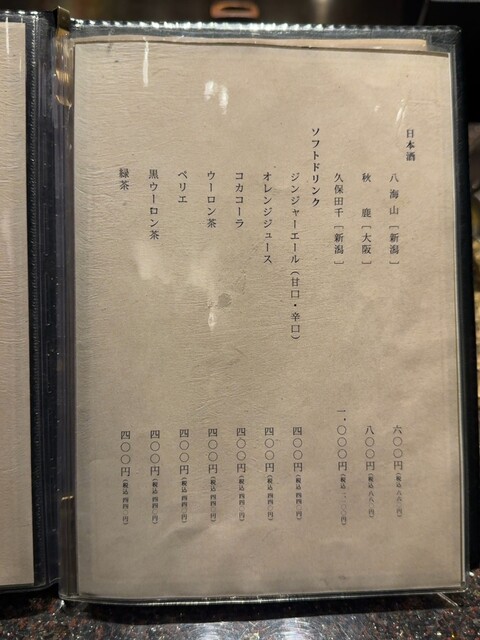 日本酒
八海山［新潟］ 六〇〇円（税込 六六〇円）
秋 鹿［大阪］ 八〇〇円（税込 八八〇円）
久保田千［新潟］ 一、〇〇〇円（税込 一、一〇〇円）
ソフトドリンク
ジンジャーエール（甘口・辛口） 四〇〇円（税込 四四〇円）
オレンジジュース 四〇〇円（税込 四四〇円）
コカコーラ 四〇〇円（税込 四四〇円）
ウーロン茶 四〇〇円（税込 四四〇円）
ペリエ 四〇〇円（税込 四四〇円）
黒ウーロン茶 四〇〇円（税込 四四〇円）
緑茶 四〇〇円（税込 四四〇円）